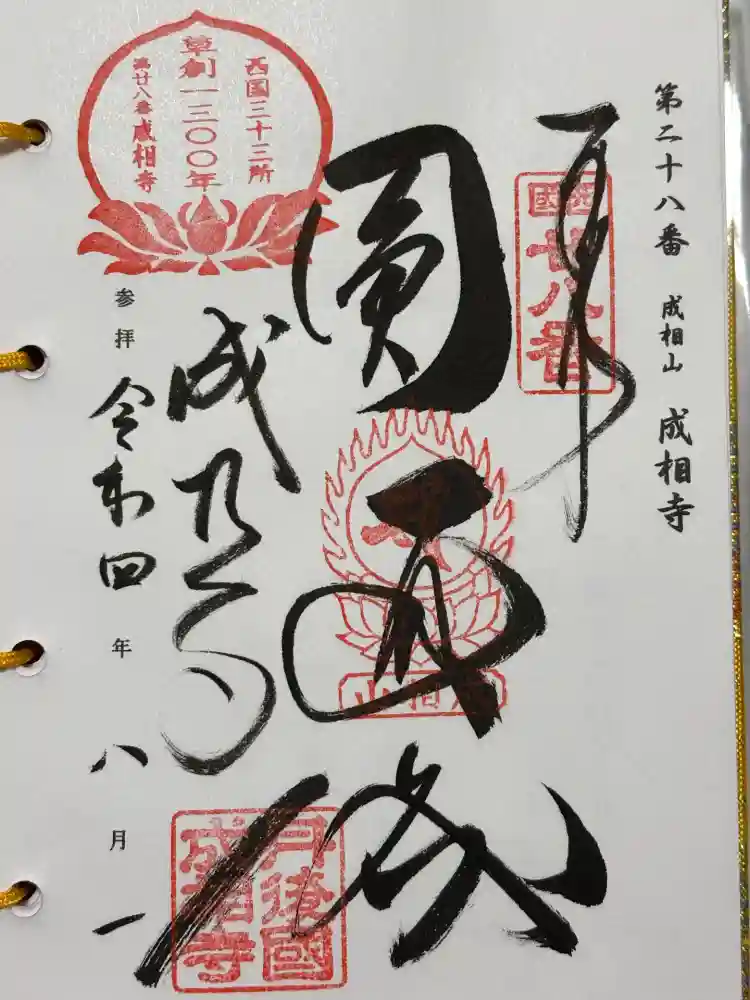 第二十八番 成相山 成相寺
奉拝
西國
廿八番
圓通殿
成相山
成相寺
西国三十三所
草創一三〇〇年
第廿八番 成相寺
丹後國
成相寺
参拝 令和四年 八月一